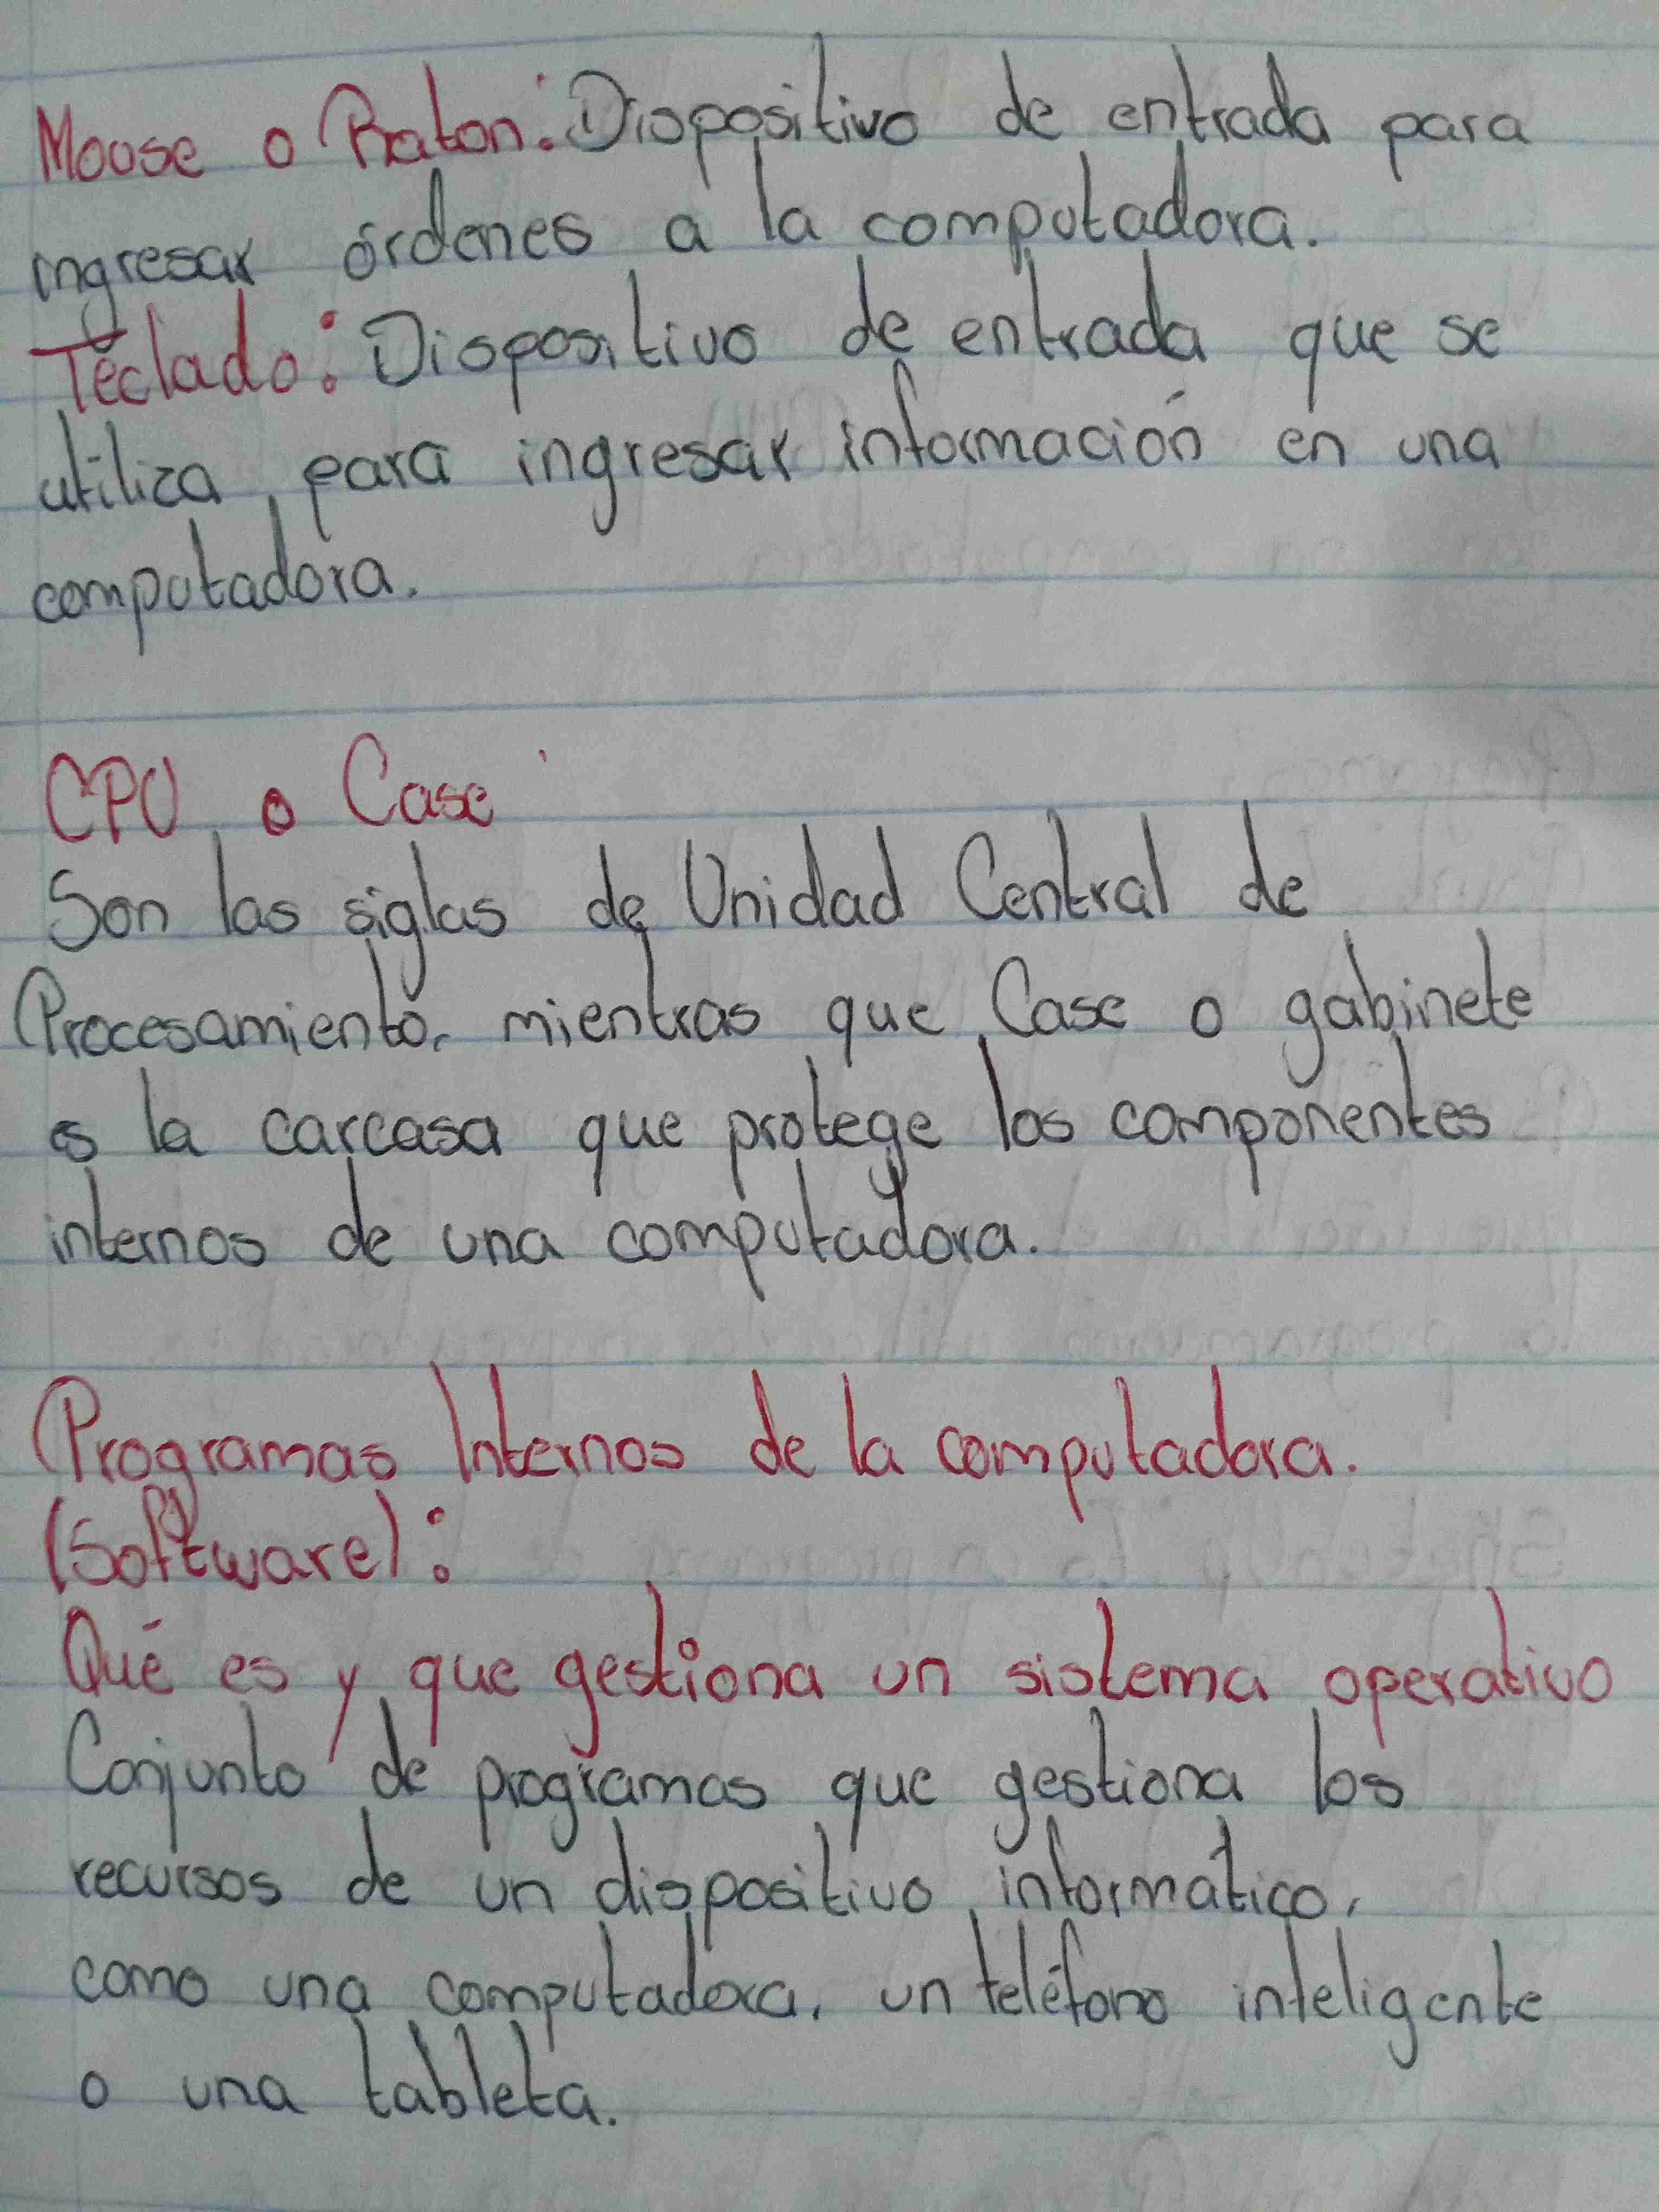 Mouse o Raton: Dispositivo de entrada para
ingresar órdenes a la computadora.
Teclado: Dispositivo de entrada que se
utiliza para ingresar información en una
computadora.
CPU o Case
Son las siglas de Unidad Central de
Procesamiento, mientras que Case o gabinete
es la carcasa que protege los componentes
internos de una computadora.
Programas Internos de la computadora.
(Software):
Qué es y que gestiona un sistema operativo
Conjunto de programas que gestiona los
recursos de un dispositivo informático,
como una computadora, un teléfono inteligente
o una tableta.